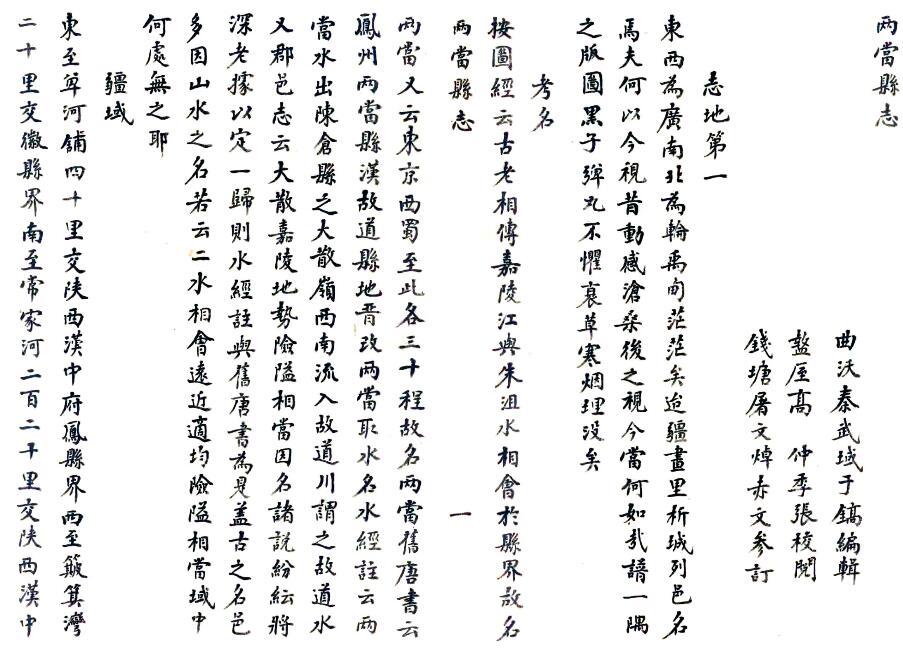 兩當縣志
曲沃秦武域于鎬編輯
盩厔高　仲季張校閱
錢塘屠文焯赤文參訂
志地第一
東西為廣南北為輪禹甸茫茫矣迨疆畫里析城列邑名
焉夫何以今視昔動感滄桑後之視今當何如哉譜一隅
之版圖黑子彈丸不懼衰草寒烟埋没矣
考名
按圖經云古老相傳嘉陵江與朱沮水相會於縣界故名
兩當縣志　一
兩當又云東京西蜀至此各三十程故名兩當舊唐書云
鳳州兩當縣漢故道縣地晋改兩當取水名水經註云兩
當水出陳倉縣之大散嶺西南流入故道川謂之故道水
又郡邑志云大散嘉陵地勢險隘相當因名諸說紛紜將
深老據以定一歸則水經註與舊唐書為是盖古之名邑
多因山水之名若云二水相會遠近適均險隘相當域中
何處無之耶
疆域
東至草河鋪四十里交陕西漢中府鳳縣界西至簸箕灣
二十里交徽縣界南至常家河二百二十里交陕西漢中